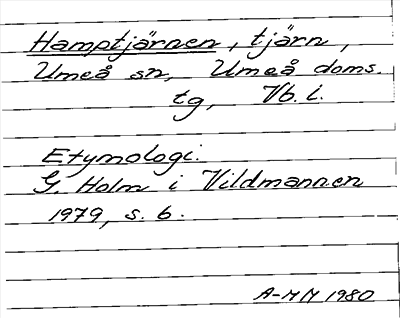 Hamptjärnen, tjärn,
Umeå sn, Umeå doms.
tg, Vb. l.
Etymologi.
G. Holm i Vildmannen
1979, s. 6.
A-MM 1980